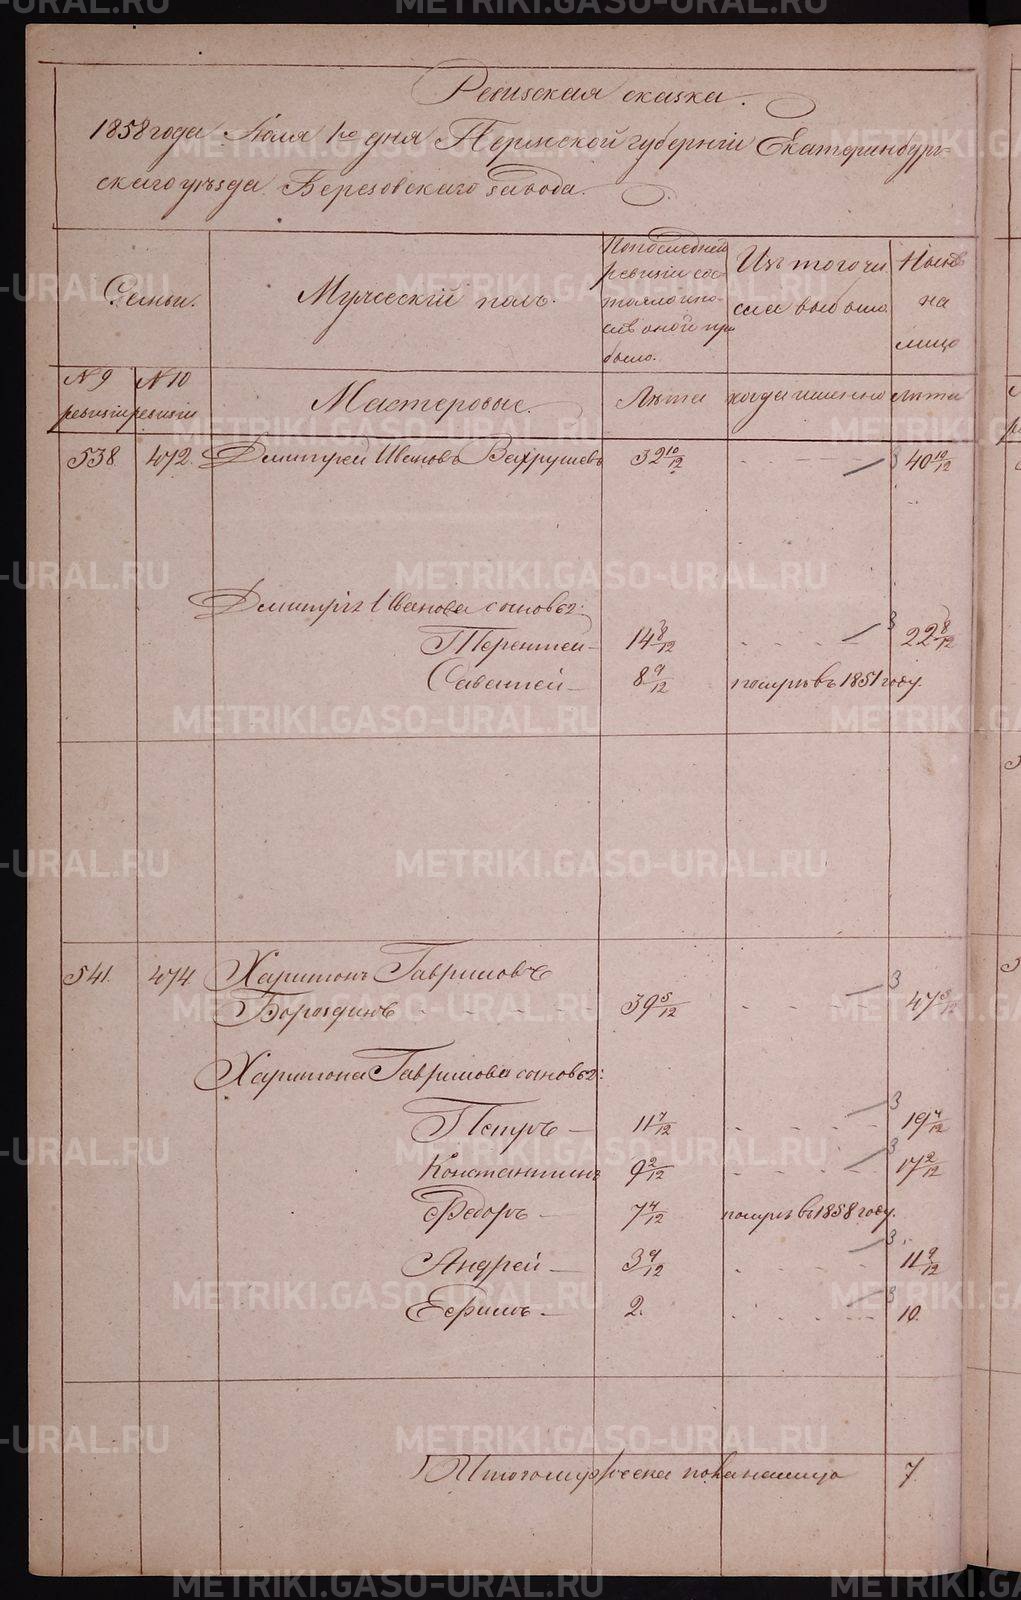 Ревизская сказка.
1858 года Июля 1го дня Пермской губернiи Екатеринбург-
скаго уѣзда Березовскаго завода.
Семьи.
Мужескiй полъ.
По последней
ревизiи сос-
тояло и по-
слѣ оной при
было.
Изъ того чи
сла выбыло.
Нынѣ
на
лицо
№ 9
ревизiи
№ 10
ревизiи
Мастеровые.
Лѣта
когда именно
лѣта
538 472. Дмитрей Ивановъ Вахрушевъ 32 10/12 3 40 10/12
Дмитрiя Иванова сыновья:
Терентей 14 8/12 3 22 8/12
Саватей 8 9/12 помръ въ 1851 году.
541. 474 Харитонъ Гавриловъ
Бороздинъ 39 5/12 3 47 5/12
Харитона Гаврилова сыновья:
Петръ 11 7/12 3 19 7/12
Константинъ 9 2/12 3 17 2/12
Федоръ 7 4/12 помръ въ 1858 году.
Андрей 3 9/12 3 11 9/12
Ефимъ 2. 3 10.
Итого мужеска пола на лицо 7.
METRIKI.GASO-URAL.RU